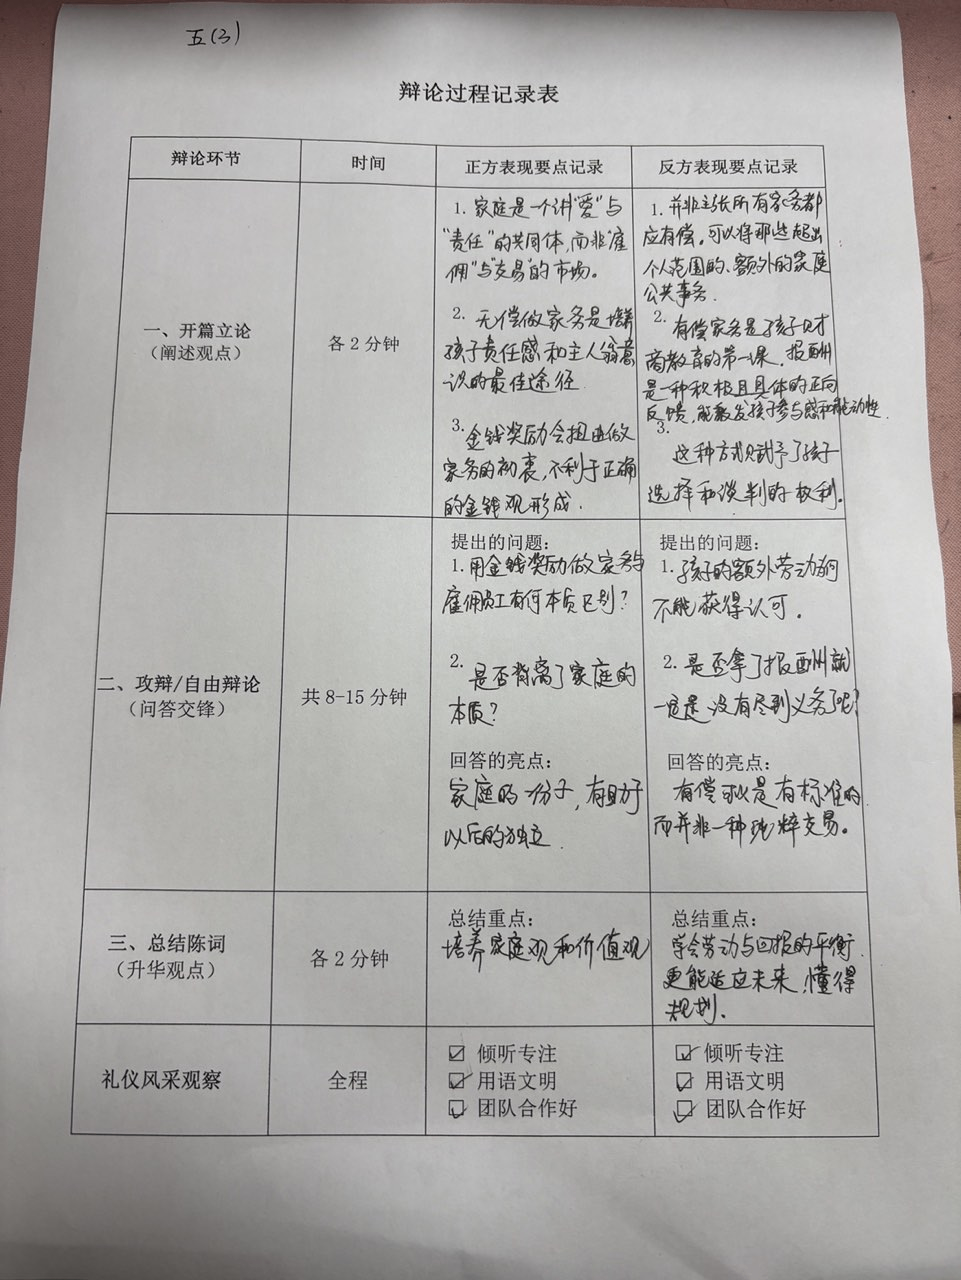 五(3)
辩论过程记录表
辩论环节
时间
正方表现要点记录
反方表现要点记录
一、开篇立论
（阐述观点）
各2分钟
1. 家庭是一个讲“爱”与
“责任”的共同体，而非“雇
佣”与“交易”的市场。
2. 无偿做家务是培养
孩子责任感和主人翁意
识的最佳途径
3. 金钱奖励会扭曲做
家务的初衷，不利于正确
的金钱观形成.
1. 并非主张所有家务都
应有偿，可以将那些超出
个人范围的、额外的家庭
公共事务.
2. 有偿家务是孩子财
商教育的第一课，报酬
是一种积极且具体的正向
反馈，能激发孩子参与感和能动性.
3.
这种方式赋予了孩子
选择和谈判的权利.
二、攻辩/自由辩论
（问答交锋）
共8-15分钟
提出的问题：
1. 用金钱奖励做家务与
雇佣员工有何本质区别？
2. 是否背离了家庭的
本质？
回答的亮点：
家庭的一份子，有助于
以后的独立.
提出的问题：
1. 孩子的额外劳动为何
不能获得认可.
2. 是否拿了报酬就
一定是没有尽到义务了呢？
回答的亮点：
有偿可以是有标准的
而并非一种纯粹交易。
三、总结陈词
（升华观点）
各2分钟
总结重点：
培养家庭观和价值观
总结重点：
学会劳动与回报的平衡
更能适应未来，懂得
规划.
礼仪风采观察
全程
☑ 倾听专注
☑ 用语文明
☑ 团队合作好
☑ 倾听专注
☑ 用语文明
☑ 团队合作好